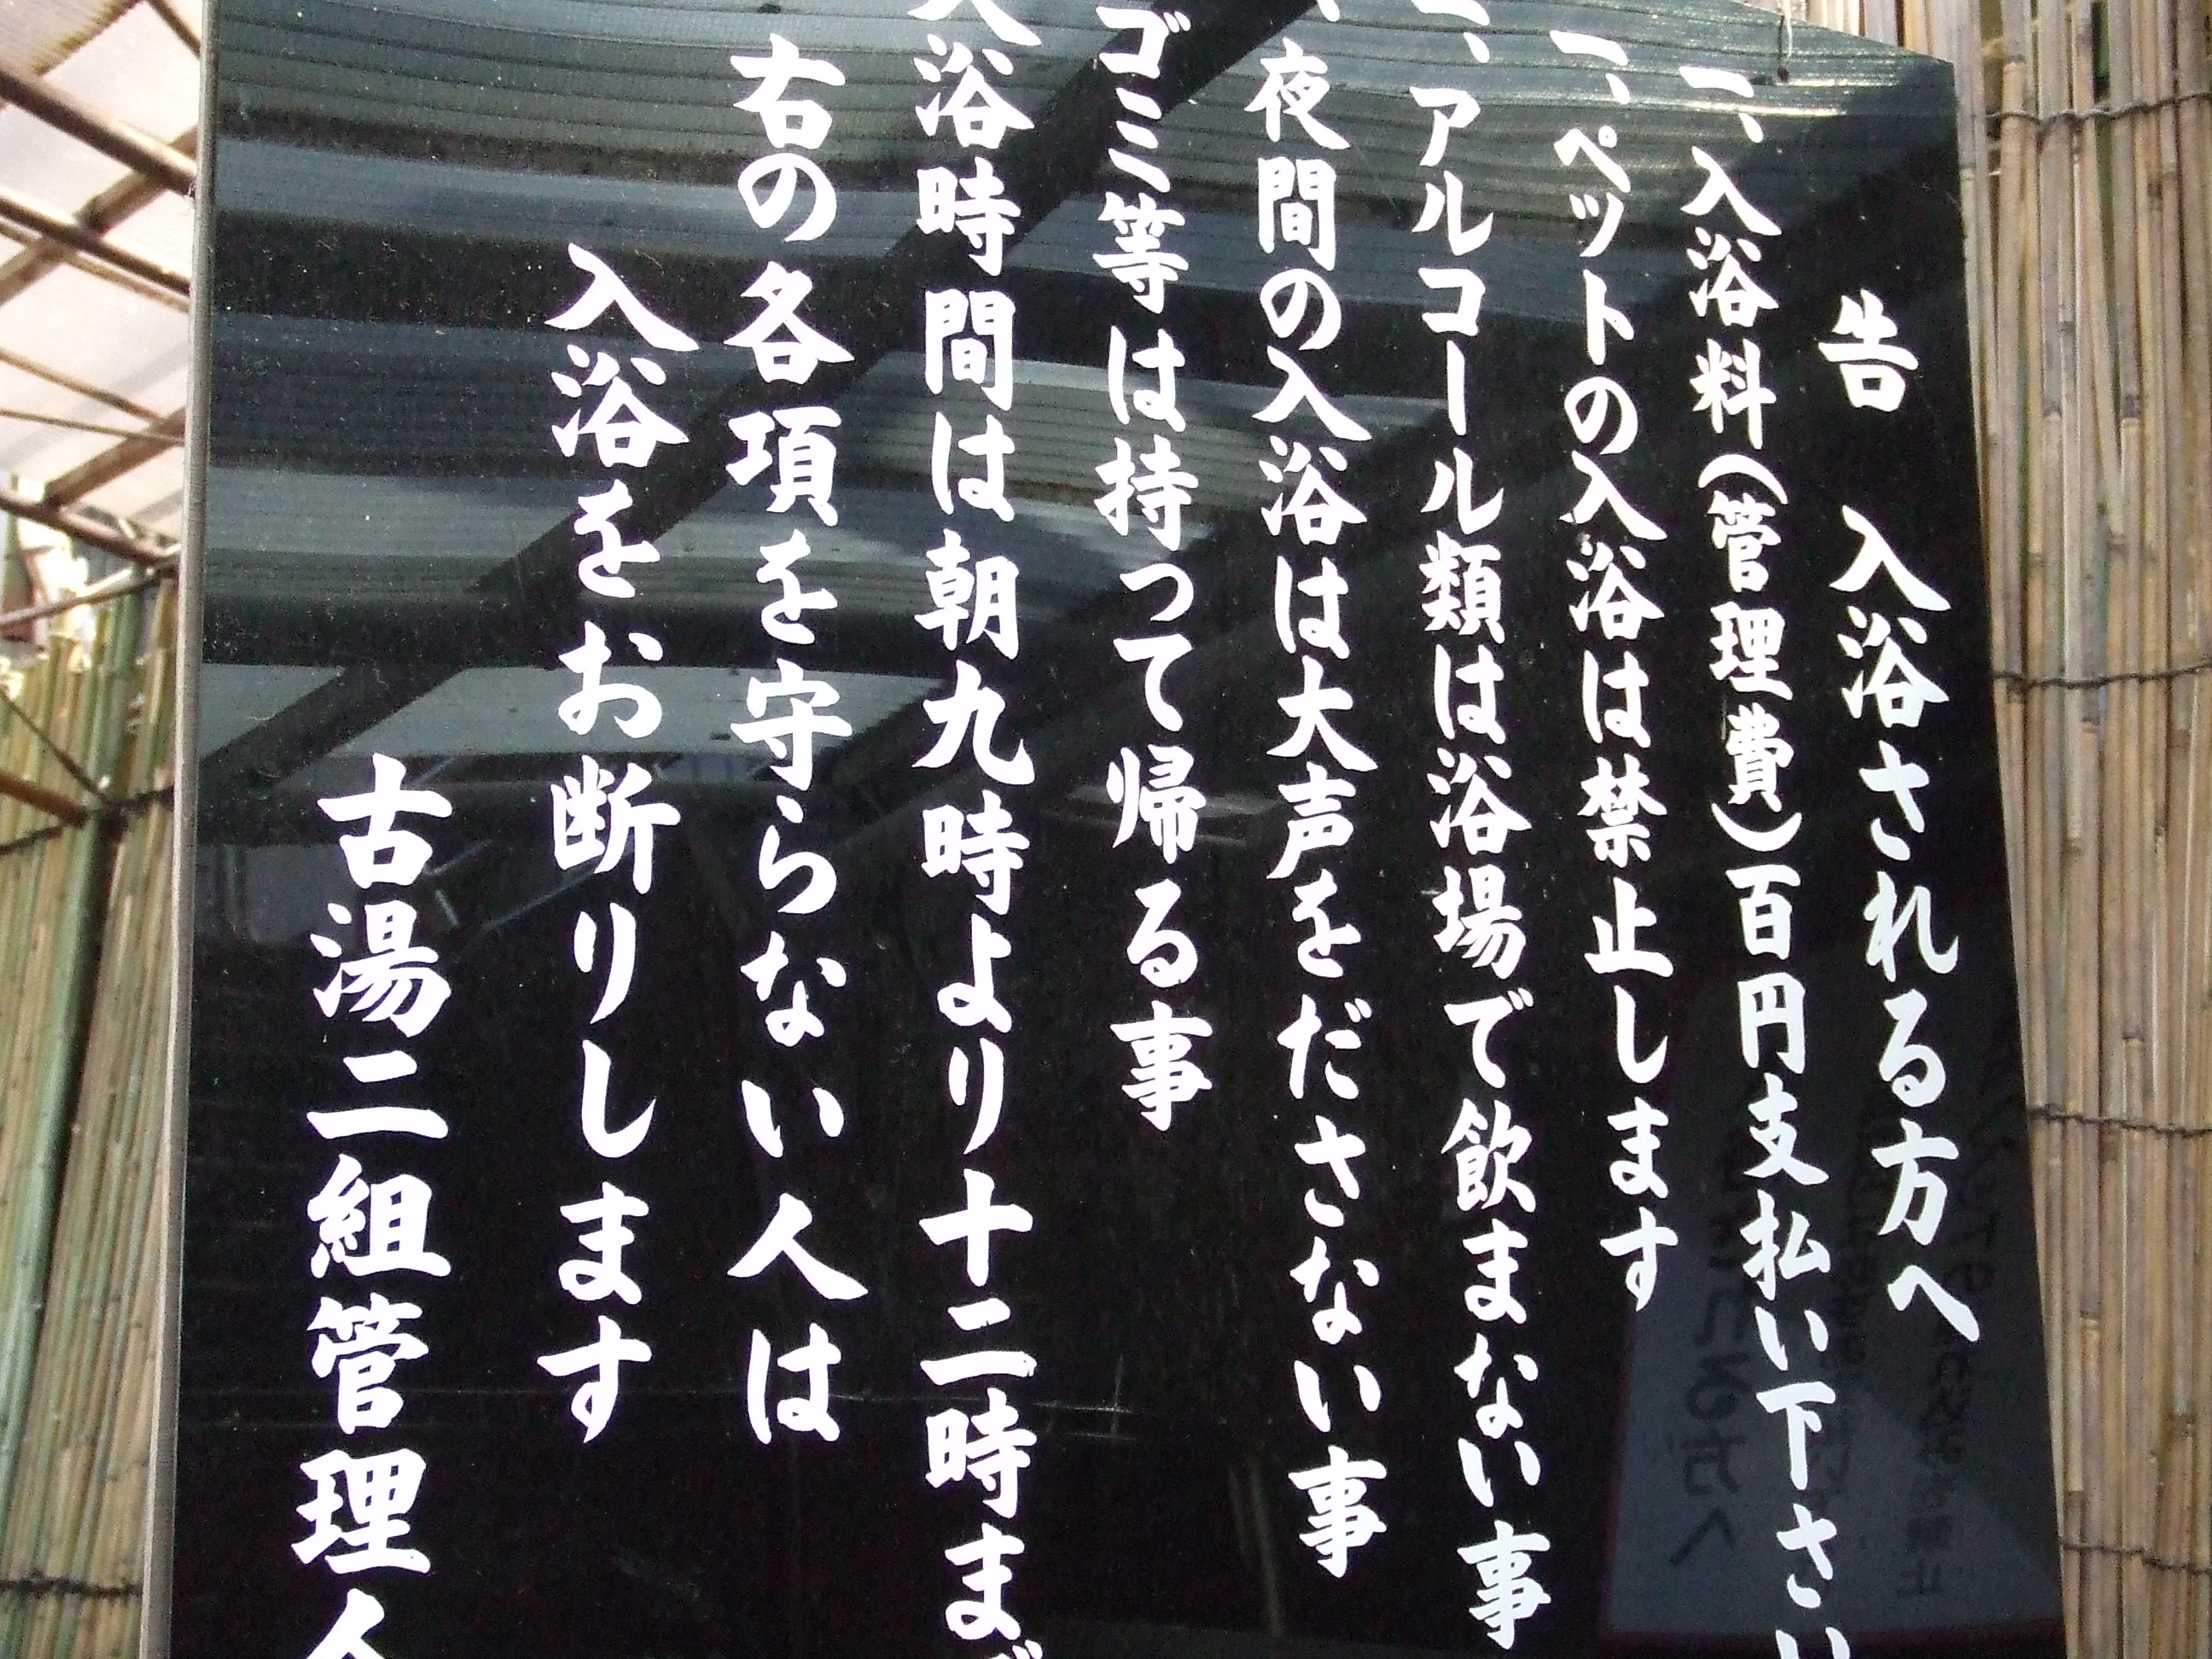 告　入浴される方へ
一、入浴料(管理費)百円支払い下さい
一、ペットの入浴は禁止します
一、アルコール類は浴場で飲まない事
、夜間の入浴は大声をださない事
ゴミ等は持って帰る事
入浴時間は朝九時より十二時まで
右の各項を守らない人は
入浴をお断りします
古湯二組管理人